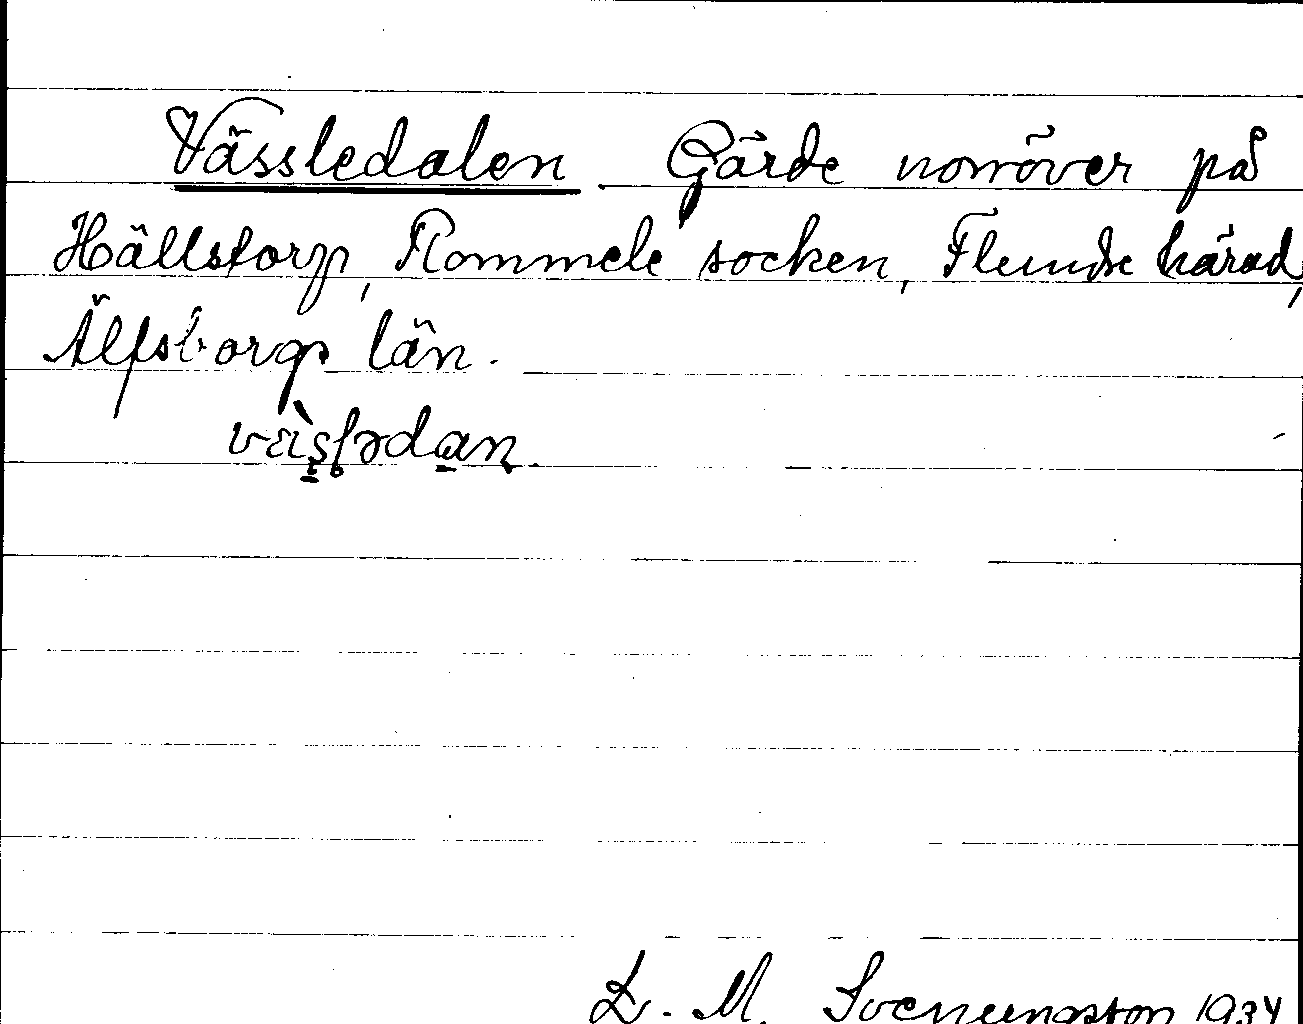 Vässledalen Gärde norröver på
Hällstorp, Rommele socken, Flundre härad,
Älfsborgs län.
L. M. Svenungsson 1934